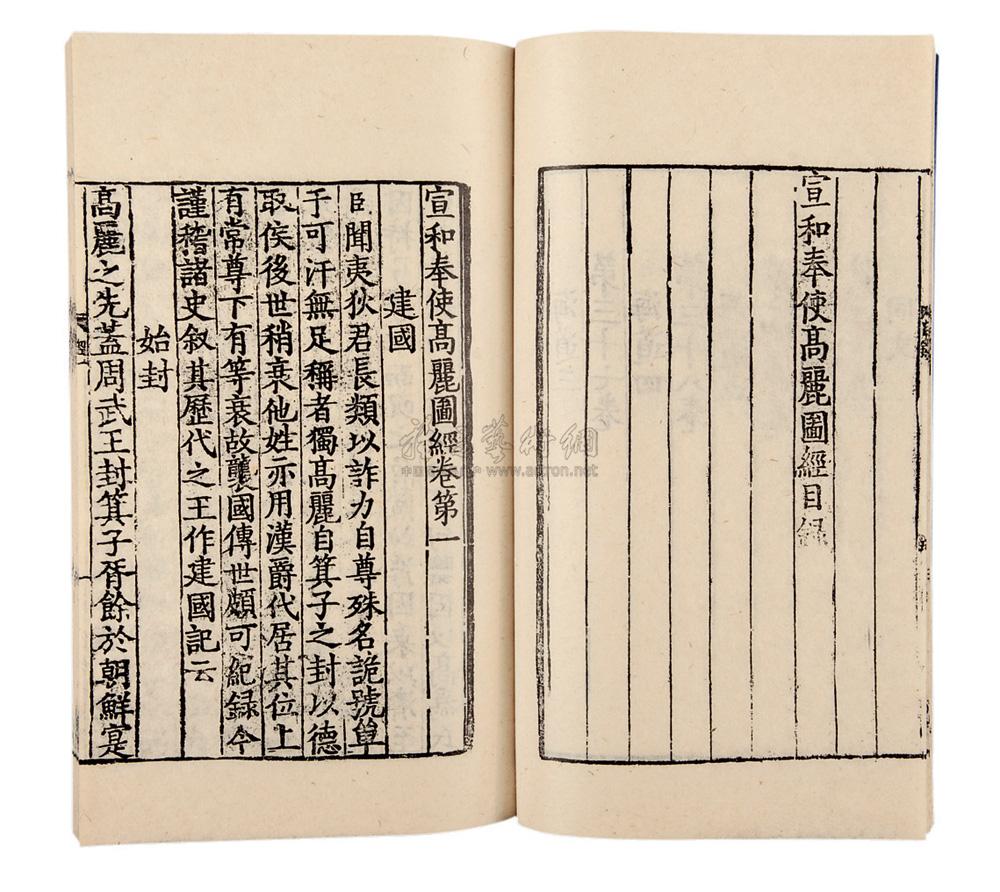 宣和奉使髙麗圖經目録
宣和奉使髙麗圖經卷第一
建國
臣聞夷狄君長類以詐力自尊殊名詭號單
于可汗無足稱者獨髙麗自箕子之封以德
取侯後世稍衰他姓亦用漢爵代居其位上
有常尊下有等衰故襲國傳世頗可紀録今
謹稽諸史叙其歴代之王作建國記云
始封
髙麗之先蓋周武王封箕子胥餘於朝鮮寔
www.artron.net